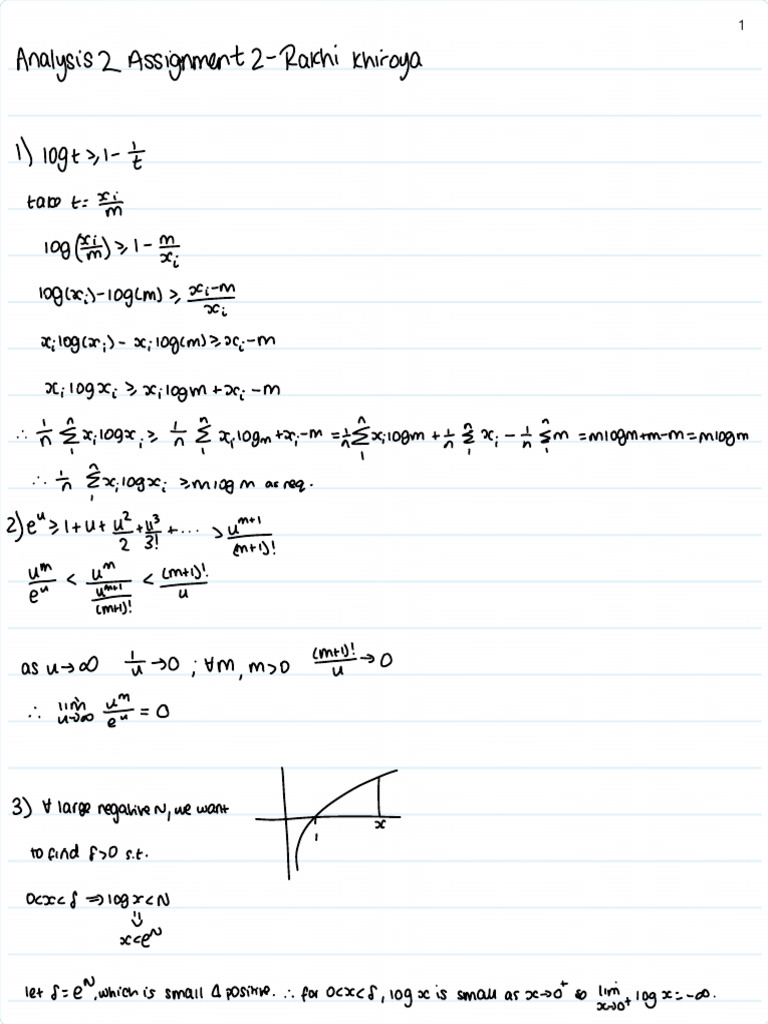 1
Analysis 2 Assignment 2 - Rakhi Khiroya
1) log t ≥ 1 - 1/t
take t = x_i/m
log(x_i/m) ≥ 1 - m/x_i
log(x_i) - log(m) ≥ (x_i - m)/x_i
x_i log(x_i) - x_i log(m) ≥ x_i - m
x_i log x_i ≥ x_i log m + x_i - m
∴ 1/n Σ_1^n x_i log x_i ≥ 1/n Σ_1^n x_i log m + x_i - m = 1/n Σ_1^n x_i log m + 1/n Σ_1^n x_i - 1/n Σ_1^n m = m log m + m - m = m log m
∴ 1/n Σ_1^n x_i log x_i ≥ m log m as req.
2) e^u ≥ 1 + u + u^2/2 + u^3/3! + ... > u^(m+1)/(m+1)!
u^m/e^u < u^m/(u^(m+1)/(m+1)!) < (m+1)!/u
as u → ∞ 1/u → 0 ; ∀m, m>0 (m+1)!/u → 0
∴ lim_(u→∞) u^m/e^u = 0
3) ∀ large negative N, we want
1 x
to find δ>0 s.t.
0<x<δ ⇒ log x < N
⇓
x<e^N
let δ = e^N, which is small & positive. ∴ for 0<x<δ, log x is small as x→0^+ so lim_(x→0^+) log x = -∞.